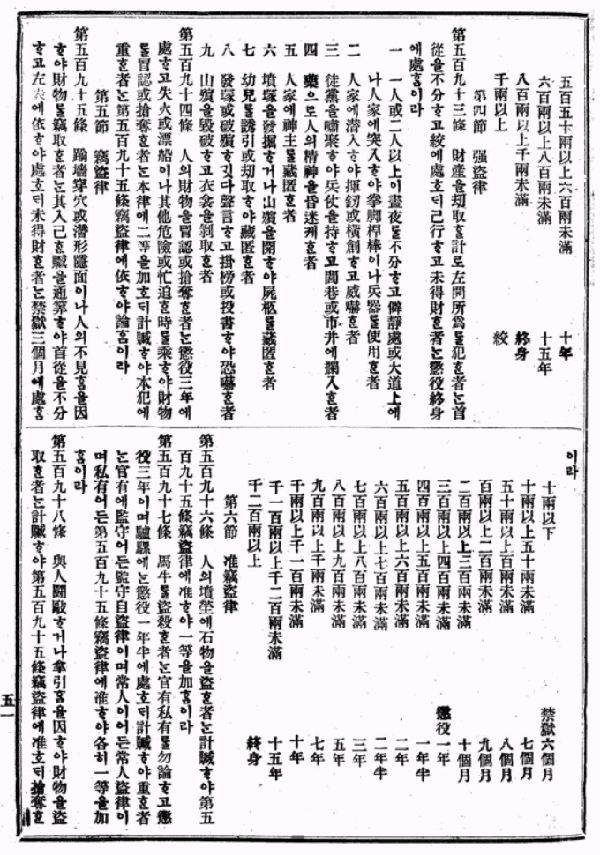 五百五十兩以上六百兩未滿 十年
六百兩以上八百兩未滿 十五年
八百兩以上千兩未滿 終身
千兩以上 絞
第四節 强盜律
第五百九十三條 財產을 却取ᄒᆞᆯ 計로 左開所爲를 犯ᄒᆞᆫ 者ᄂᆞᆫ 首
從을 不分ᄒᆞ고 絞에 處호ᄃᆡ 已行ᄒᆞ고 未得財ᄒᆞᆫ 者ᄂᆞᆫ 懲役終身
에 處홈이라
一 一人或二人以上이 晝夜를 不分ᄒᆞ고 僻靜處或大道上에
나 人家에 突入ᄒᆞ야 拳脚桿棒이나 兵器를 使用ᄒᆞᆫ 者
二 人家에 潛入ᄒᆞ야 揮釰或橫創ᄒᆞ고 威嚇ᄒᆞᆫ 者
三 徒黨을 嘯聚ᄒᆞ야 兵仗을 持ᄒᆞ고 閭巷或市井에 攔入ᄒᆞᆫ 者
四 藥으로 人의 精神을 昏迷케 ᄒᆞᆫ 者
五 人家에 神主를 藏匿ᄒᆞᆫ 者
六 墳塚을 發掘ᄒᆞ거나 山殯을 開ᄒᆞ야 屍柩를 藏匿ᄒᆞᆫ 者
七 幼兒를 誘引或却取ᄒᆞ야 藏匿ᄒᆞᆫ 者
八 發塚或破殯ᄒᆞ깃다 聲言ᄒᆞ고 掛榜或投書ᄒᆞ야 恐嚇ᄒᆞᆫ 者
九 山殯을 毁破ᄒᆞ고 衣衾을 剝取ᄒᆞᆫ 者
第五百九十四條 人의 財物을 冒認或搶奪ᄒᆞᆫ 者ᄂᆞᆫ 懲役三年에
處ᄒᆞ고 失火或漂船이나 其他危險或忙迫ᄒᆞᆫ 時를 乘ᄒᆞ야 財物
를 冒認或搶奪ᄒᆞᆫ 者ᄂᆞᆫ 本律에 二等을 加호ᄃᆡ 計贓ᄒᆞ야 本犯에
重ᄒᆞᆫ 者ᄂᆞᆫ 第五百九十五條竊盜律에 依ᄒᆞ야 論홈이라
第五節 竊盜律
第五百九十五條 踰墻穿穴或潛形隱面이나 人의 不見홈을 因
ᄒᆞ야 財物를 竊取ᄒᆞᆫ 者ᄂᆞᆫ 其入己ᄒᆞᆫ 贓을 通算ᄒᆞ야 首從을 不分
ᄒᆞ고 左表에 依ᄒᆞ야 處호ᄃᆡ 未得財ᄒᆞᆫ 者ᄂᆞᆫ 禁獄三個月에 處홈
이라
十兩以下 禁獄六個月
十兩以上五十兩未滿 七個月
五十兩以上百兩未滿 八個月
百兩以上二百兩未滿 九個月
二百兩以上三百兩未滿 十個月
三百兩以上四百兩未滿 懲役一年
四百兩以上五百兩未滿 一年半
五百兩以上六百兩未滿 二年
六百兩以上七百兩未滿 二年半
七百兩以上八百兩未滿 三年
八百兩以上九百兩未滿 五年
九百兩以上千兩未滿 七年
千兩以上千一百兩未滿 十年
千一百兩以上千二百兩未滿 十五年
千二百兩以上 終身
第六節 准竊盜律
第五百九十六條 人의 墳塋에 石物을 盜ᄒᆞᆫ 者ᄂᆞᆫ 計贓ᄒᆞ야 第五
百九十五條竊盜律에 准ᄒᆞ야 一等을 加홈이라
第五百九十七條 馬牛를 盜殺ᄒᆞᆫ 者ᄂᆞᆫ 官有私有를 勿論ᄒᆞ고 懲
役三年이며 驢騾에ᄂᆞᆫ 懲役一年半에 處호ᄃᆡ 計贓ᄒᆞ야 重ᄒᆞᆫ 者
ᄂᆞᆫ 官有에 監守어든 監守自盜律이며 常人이어든 常人盜律이
며 私有어든 第五百九十五條竊盜律에 准ᄒᆞ야 各히 一等을 加
홈이라
第五百九十八條 與人鬪敺ᄒᆞ거나 拿引홈을 因ᄒᆞ야 財物을 盜
取ᄒᆞᆫ 者ᄂᆞᆫ 計贓ᄒᆞ야 第五百九十五條竊盜律에 准호ᄃᆡ 搶奪ᄒᆞᆫ
五一